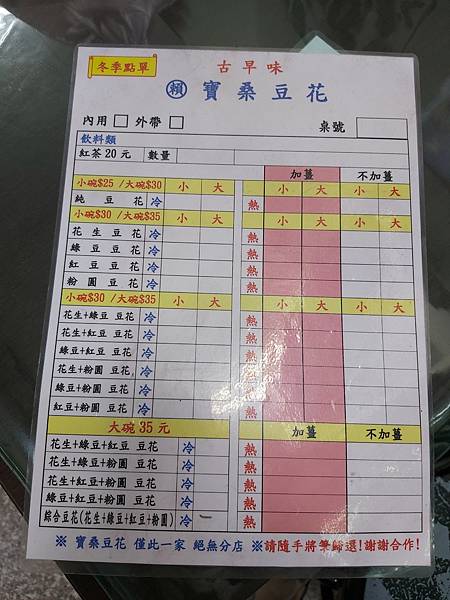 冬季點單
古早味
賴 寶桑豆花
內用□ 外帶□ 桌號
飲料類
紅茶20元 數量
加薑 不加薑
小碗$25 /大碗$30 小 大 小 大 小 大
純豆花 冷 熱
小碗$30 /大碗$35 小 大 小 大 小 大
花生豆花 冷 熱
綠豆豆花 冷 熱
紅豆豆花 冷 熱
粉圓豆花 冷 熱
小碗$30 /大碗$35 小 大 小 大 小 大
花生+綠豆 豆花 冷 熱
花生+紅豆 豆花 冷 熱
綠豆+紅豆 豆花 冷 熱
花生+粉圓 豆花 冷 熱
綠豆+粉圓 豆花 冷 熱
紅豆+粉圓 豆花 冷 熱
大碗 35 元 加薑 不加薑
花生+綠豆+紅豆 豆花 冷 熱
花生+綠豆+粉圓 豆花 冷 熱
花生+紅豆+粉圓 豆花 冷 熱
綠豆+紅豆+粉圓 豆花 冷 熱
綜合豆花(花生+綠豆+紅豆+粉圓) 冷 熱
※ 寶桑豆花 僅此一家 絕無分店 ※請隨手將筆歸還!謝謝合作!